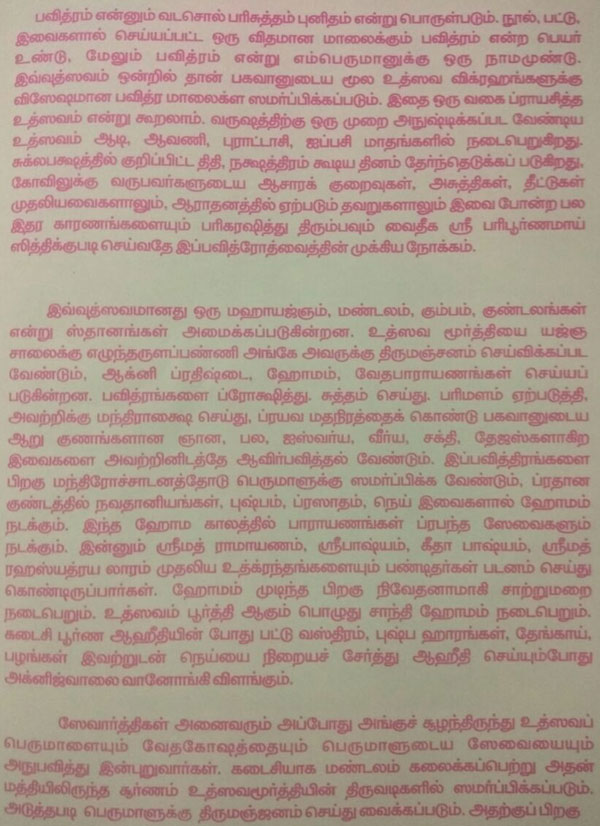 பவித்ரம் என்னும் வடசொல் பரிசுத்தம் புனிதம் என்று பொருள்படும். நூல், பட்டு,
இவைகளால் செய்யப்பட்ட ஒரு விதமான மாலைக்கும் பவித்ரம் என்ற பெயர்
உண்டு, மேலும் பவித்ரம் என்று எம்பெருமானுக்கு ஒரு நாமமுண்டு.
இவ்வுத்ஸவம் ஒன்றில் தான் பகவானுடைய மூல உத்ஸவ விக்ரஹங்களுக்கு
விஸேஷமான பவித்ர மாலைகள ஸமர்ப்பிக்கப்படும். இதை ஒரு வகை ப்ராயசித்த
உத்ஸவம் என்று கூறலாம். வருஷத்திற்கு ஒரு முறை அநுஷ்டிக்கப்பட வேண்டிய
உத்ஸவம் ஆடி, ஆவணி, புராட்டாசி, ஐப்பசி மாதங்களில் நடைபெறுகிறது.
சுக்லபக்ஷத்தில் குறிப்பிட்ட திதி, நக்ஷத்திரம் கூடிய தினம் தேர்ந்தெடுக்கப் படுகிறது.
கோவிலுக்கு வருபவர்களுடைய ஆசாரக் குறைவுகள், அசுத்திகள், தீட்டுகள்
முதலியவைகளாலும், ஆராதனத்தில் ஏற்படும் தவறுகளாலும் இவை போன்ற பல
இதர காரணங்களையும் பரிகரஷித்து திரும்பவும் வைதீக ஸ்ரீ பரிபூர்ணமாய்
ஸித்திக்குபடி செய்வதே இப்பவித்ரோத்வைத்தின் முக்கிய நோக்கம்.
இவ்வுத்ஸவமானது ஒரு மஹாயஜ்ஞம், மண்டலம், கும்பம், குண்டலங்கள்
என்று ஸ்தானங்கள் அமைக்கப்படுகின்றன. உத்ஸவ மூர்த்தியை யஜ்ஞ
சாலைக்கு எழுந்தருளப்பண்ணி அங்கே அவருக்கு திருமஞ்சனம் செய்விக்கப்பட
வேண்டும், ஆக்னி ப்ரதிஷ்டை, ஹோமம், வேதபாராயணங்கள் செய்யப்
படுகின்றன. பவித்ரங்களை ப்ரோக்ஷித்து. சுத்தம் செய்து. பரிமளம் ஏற்படுத்தி,
அவற்றிக்கு மந்திராக்ஷை செய்து, ப்ரயவ மதநிரத்தைக் கொண்டு பகவானுடைய
ஆறு குணங்களான ஞான, பல, ஐஸ்வர்ய, வீர்ய, சக்தி, தேஜஸ்களாகிற
இவைகளை அவற்றினிடத்தே ஆவிர்பவித்தல் வேண்டும். இப்பவித்திரங்களை
பிறகு மந்திரோச்சாடனத்தோடு பெருமாளுக்கு ஸமர்ப்பிக்க வேண்டும், ப்ரதான
குண்டத்தில் நவதானியங்கள், புஷ்பம், ப்ரஸாதம், நெய் இவைகளால் ஹோமம்
நடக்கும். இந்த ஹோம காலத்தில் பாராயணங்கள் ப்ரபந்த ஸேவைகளும்
நடக்கும். இன்னும் ஸ்ரீமத் ராமாயணம், ஸ்ரீபாஷ்யம், கீதா பாஷ்யம், ஸ்ரீமத்
ரஹஸ்யத்ரய ஸாரம் முதலிய உத்க்ரந்தங்களையும் பண்டிதர்கள் படனம் செய்து
கொண்டிருப்பார்கள். ஹோமம் முடிந்த பிறகு நிவேதனாமாகி சாற்றுமறை
நடைபெறும். உத்ஸவம் பூர்த்தி ஆகும் பொழுது சாந்தி ஹோமம் நடைபெறும்.
கடைசி பூர்ண ஆஹீதியின் போது பட்டு வஸ்திரம், புஷ்ப ஹாரங்கள், தேங்காய்,
பழங்கள் இவற்றுடன் நெய்யை நிறையச் சேர்த்து ஆஹீதி செய்யும்போது
அக்னிஜ்வாலை வானோங்கி விளங்கும்.
ஸேவார்த்திகள் அனைவரும் அப்போது அங்குச் சூழந்திருந்து உத்ஸவப்
பெருமாளையும் வேதகோஷத்தையும் பெருமாளுடைய ஸேவையையும்
அநுபவித்து இன்புறுவார்கள். கடைசியாக மண்டலம் கலைக்கப்பெற்று அதன்
மத்தியிலிருந்த சூர்ணம் உத்ஸவமூர்த்தியின் திருவடிகளில் ஸமர்ப்பிக்கப்படும்.
அடுத்தபடி பெருமாளுக்கு திருமஞ்ஜனம் செய்து வைக்கப்படும். அதற்குப் பிறகு